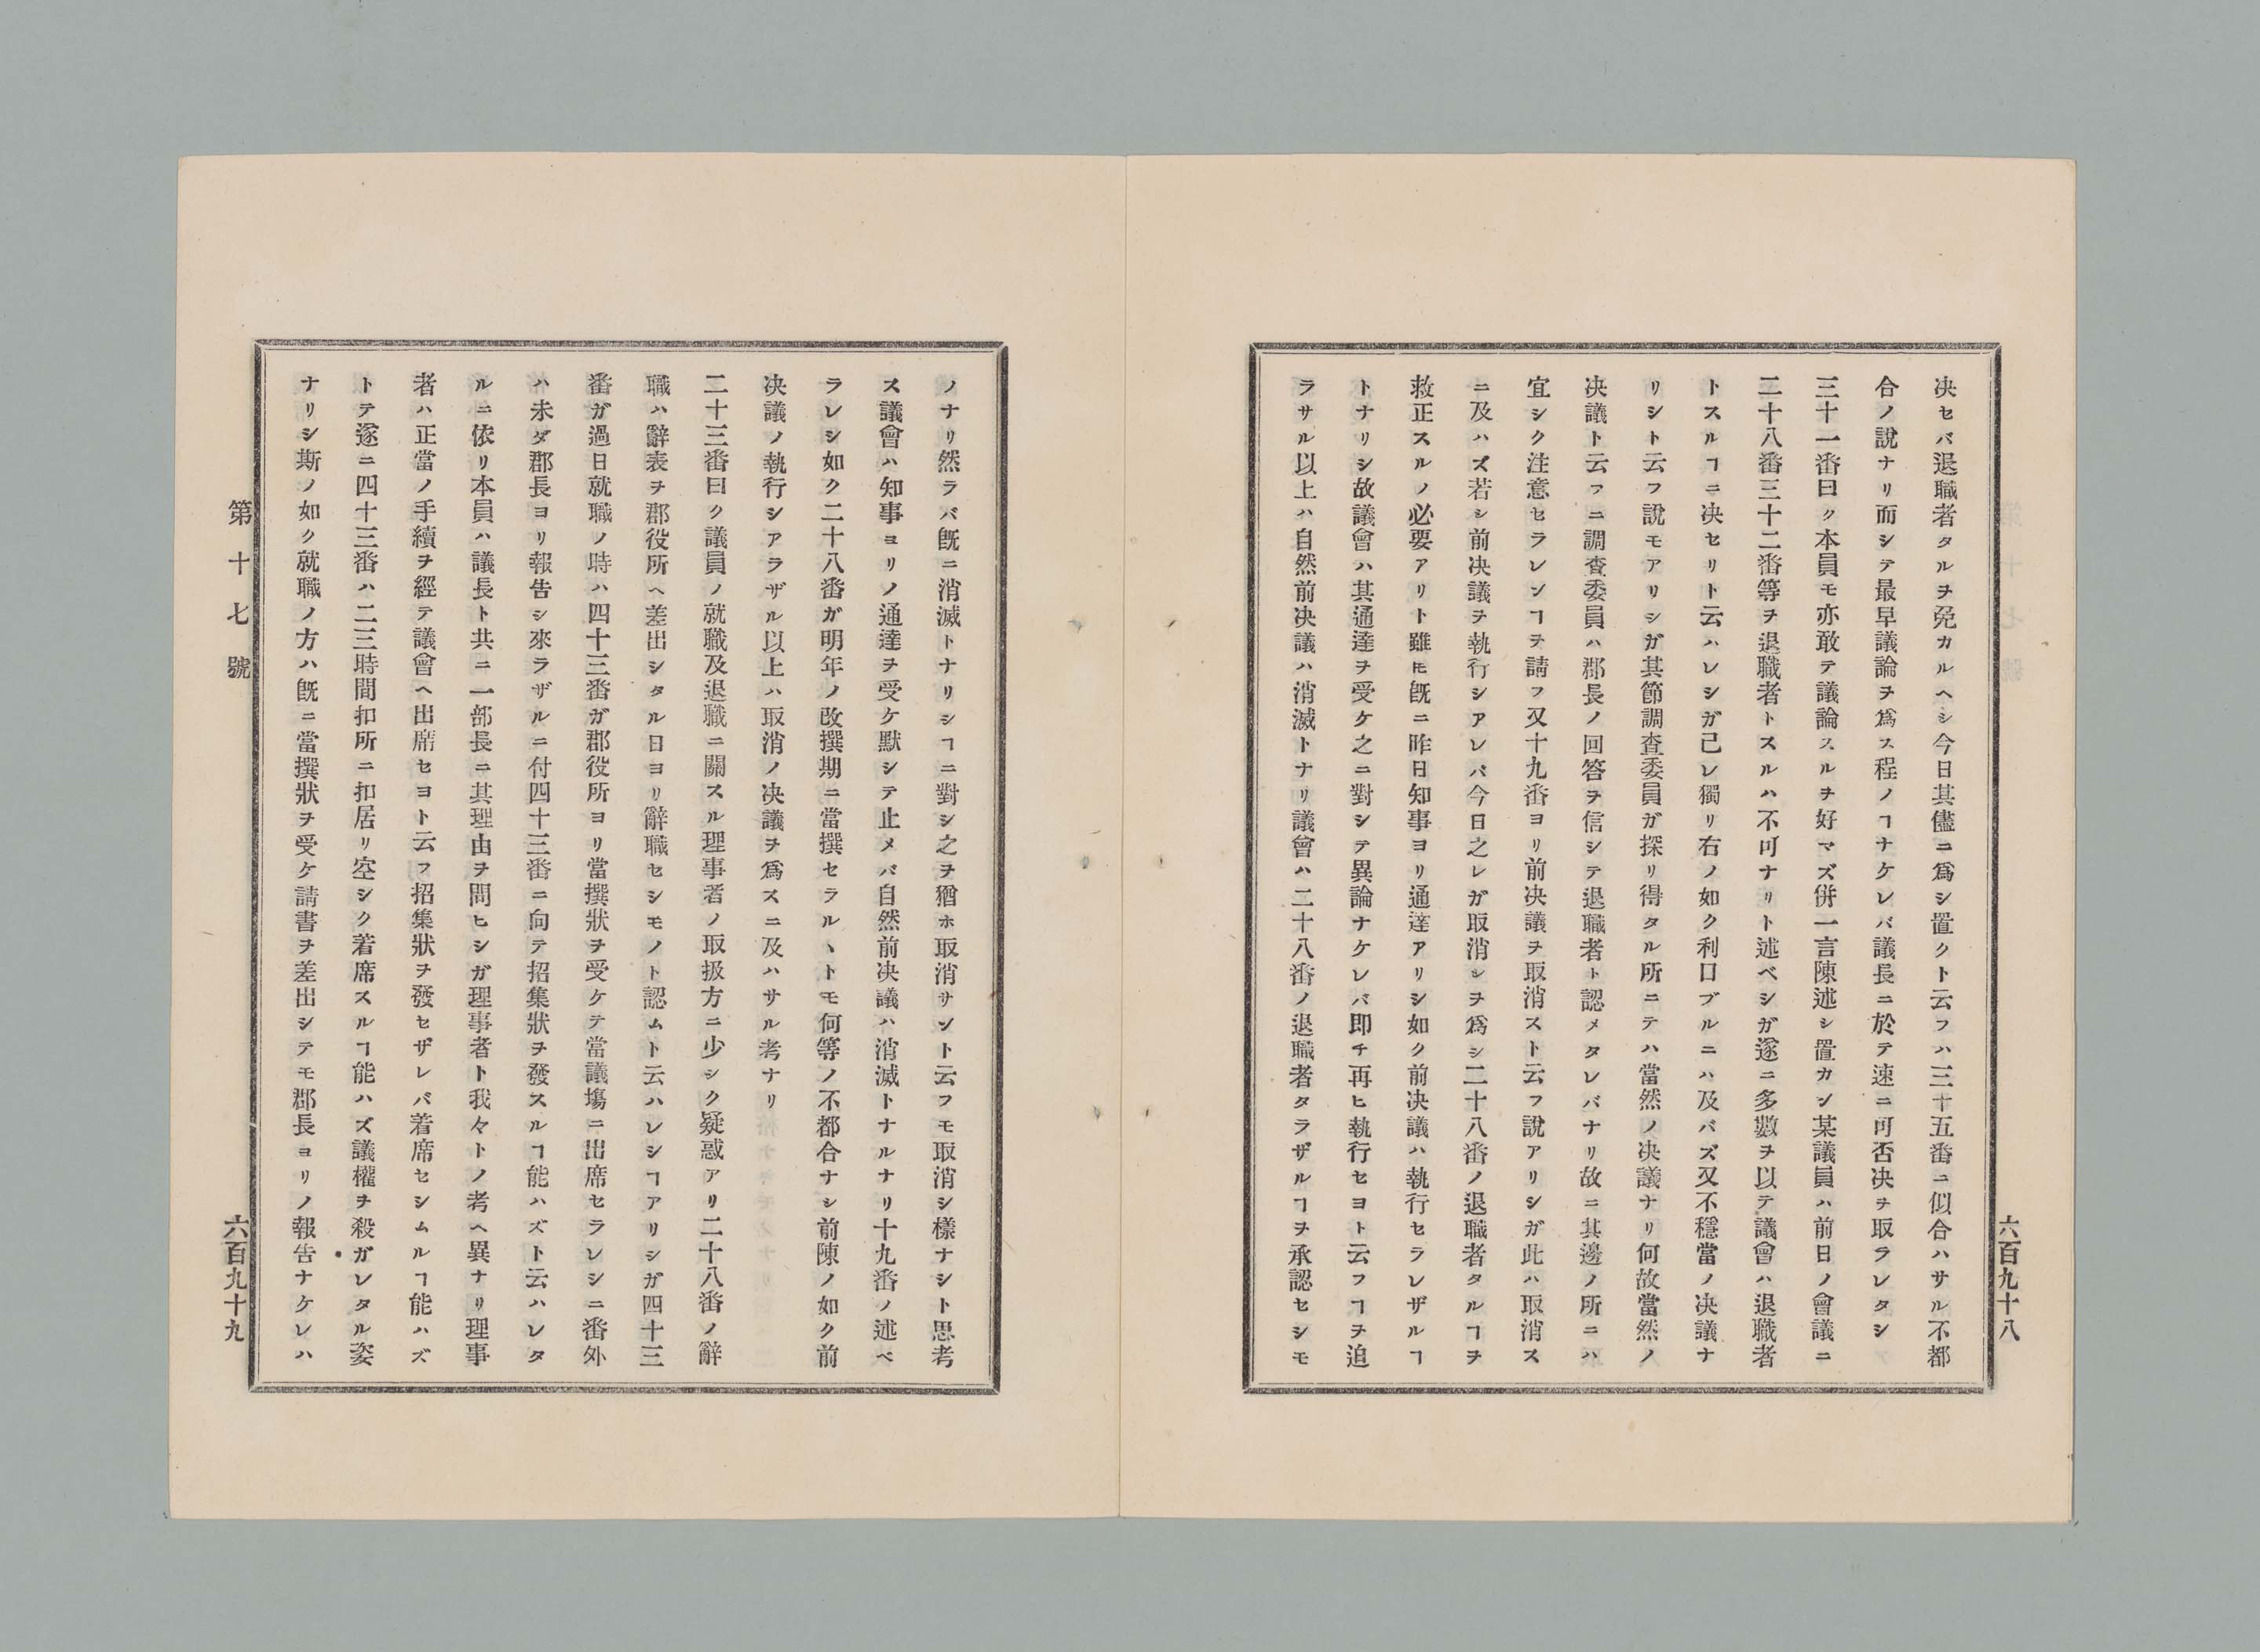 六百九十八
决セバ退職者タルヲ免カルヘシ今日其儘ニ爲シ置クト云フハ三十五番ニ似合ハサル不都
合ノ說ナリ而シテ最早議論ヲ爲ス程ノヿナケレバ議長ニ於テ速ニ可否决ヲ取ラレタシ
三十一番曰ク本員モ亦敢テ議論スルヲ好マズ併一言陳述シ置カン某議員ハ前日ノ會議ニ
二十八番三十二番等ヲ退職者トスルハ不可ナリト述ベシガ遂ニ多數ヲ以テ議會ハ退職者
トスルヿニ决セリト云ハレシガ己レ獨リ右ノ如ク利口ブルニハ及バズ又不穩當ノ决議ナ
リシト云フ說モアリシガ其節調査委員ガ探リ得タル所ニテハ當然ノ决議ナリ何故當然ノ
决議ト云フニ調査委員ハ郡長ノ回答ヲ信シテ退職者ト認メタレバナリ故ニ其邊ノ所ニハ
宜シク注意セラレンヿヲ請フ又十九番ヨリ前决議ヲ取消スト云フ說アリシガ此ハ取消ス
ニ及ハズ若シ前决議ヲ執行シアレバ今日之レガ取消シヲ爲シ二十八番ノ退職者タルヿヲ
救正スルノ必要アリト雖ㇳモ既ニ昨日知事ヨリ通達アリシ如ク前决議ハ執行セラレザルヿ
トナリシ故議會ハ其通達ヲ受ケ之ニ對シテ異論ナケレバ即チ再ヒ執行セヨト云フヿヲ追
ラサル以上ハ自然前决議ハ消滅トナリ議會ハ二十八番ノ退職者タラザルヿヲ承認セシモ
ノナリ然ラバ既ニ消滅トナリシヿニ對シ之ヲ猶ホ取消サント云フモ取消シ樣ナシト思考
ス議會ハ知事ヨリノ通達ヲ受ケ默シテ止メバ自然前决議ハ消滅トナルナリ十九番ノ述ベ
ラレシ如ク二十八番ガ明年ノ改撰期ニ當撰セラルヽトモ何等ノ不都合ナシ前陳ノ如ク前
决議ノ執行シアラザル以上ハ取消ノ决議ヲ爲スニ及ハサル考ナリ
二十三番曰ク議員ノ就職及退職ニ關スル理事者ノ取扱方ニ少シク疑惑アリ二十八番ノ辭
職ハ辭表ヲ郡役所ヘ差出シタル日ヨリ辭職セシモノト認ムト云ハレシヿアリシガ四十三
番ガ過日就職ノ時ハ四十三番ガ郡役所ヨリ當撰狀ヲ受ケテ當議塲ニ出席セラレシニ番外
ハ未ダ郡長ヨリ報告シ來ラザルニ付四十三番ニ向テ招集狀ヲ發スルヿ能ハズト云ハレタ
ルニ依リ本員ハ議長ト共ニ一部長ニ其理由ヲ問ヒシガ理事者ト我々トノ考ヘ異ナリ理事
者ハ正當ノ手續ヲ經テ議會ヘ出席セヨト云フ招集狀ヲ發セザレバ着席セシムルヿ能ハズ
トテ遂ニ四十三番ハ二三時間扣所ニ扣居リ空シク着席スルヿ能ハズ議權ヲ殺ガレタル姿
ナリシ斯ノ如ク就職ノ方ハ既ニ當撰狀ヲ受ケ請書ヲ差出シテモ郡長ヨリノ報告ナケレハ
第十七號
六百九十九